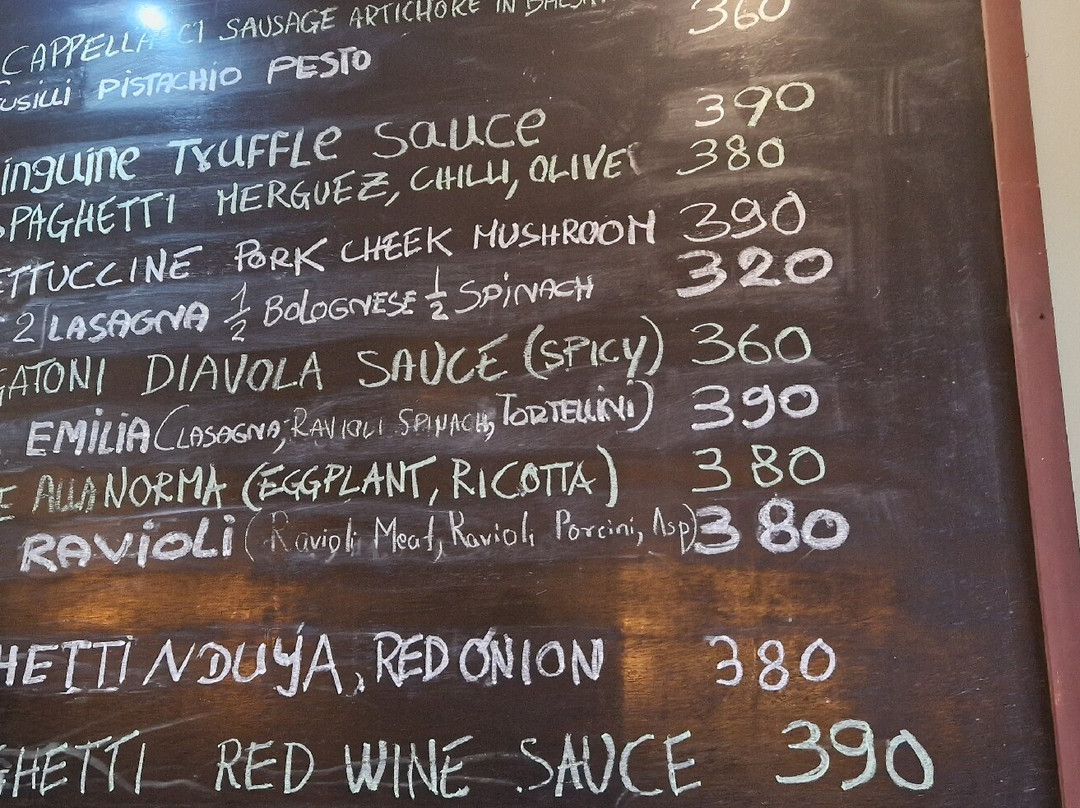 CAPPELLACI SAUSAGE ARTICHOKE IN BALSA 360
FUSILLI PISTACHIO PESTO
inguine TRUFFLE SAUCE 390
SPAGHETTI MERGUEZ, CHILLI, OLIVE 380
ETTUCCINE PORK CHEEK MUSHROOM 390
2 LASAGNA 1/2 BOLOGNESE 1/2 SPINACH 320
GATONI DIAVOLA SAUCE (SPICY) 360
EMILIA (LASAGNA, RAVIOLI SPINACH, TORTELLINI) 390
E ALLA NORMA (EGGPLANT, RICOTTA) 380
RAVIOLI (Ravioli Meat, Ravioli Porcini, Asp) 380
HETTI NDUYA, RED ONION 380
GHETTI RED WINE SAUCE 390